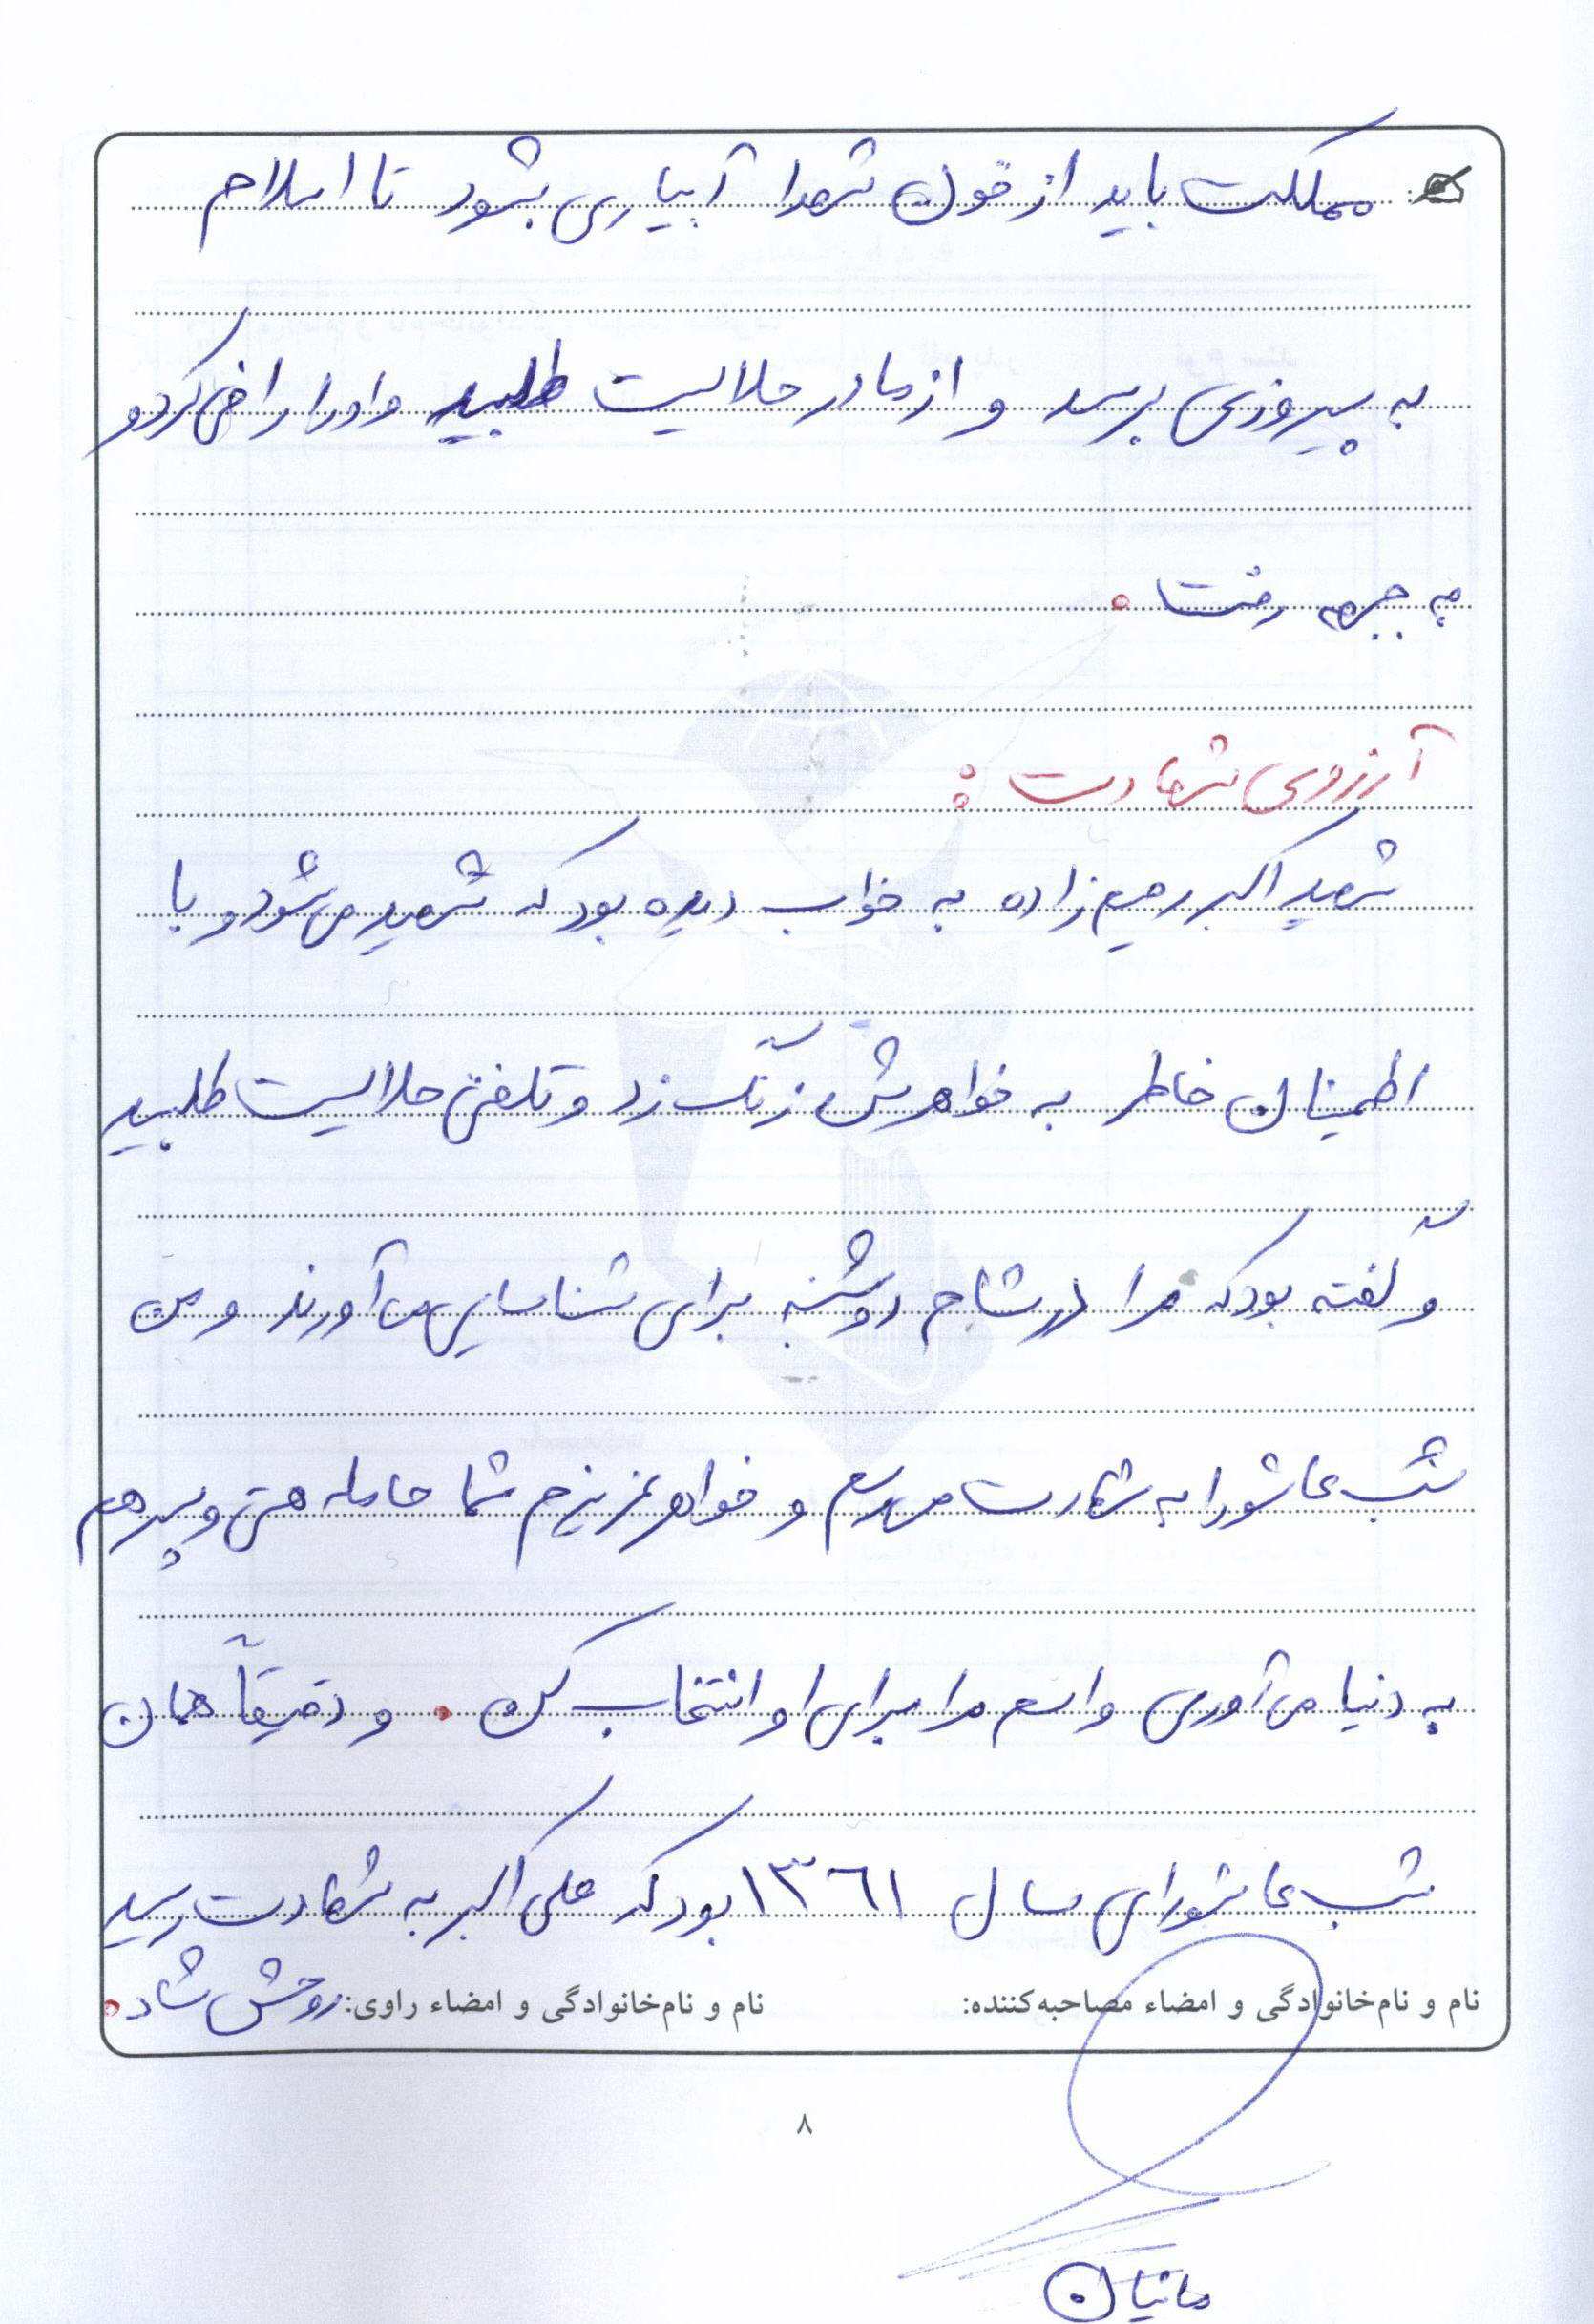 مملکت باید از خون شهدا آبیاری بشود تا اسلام
به پیروزی برسد و از مادر حلالیت طلبید و او را راضی کرد و
به جبهه رفت.
آرزوی شهادت:
شهید اکبر رحیم زاده به خواب دیده بود که شهید می شود و با
اطمینان خاطر به خواهرش زنگ زد و تلفنی حلالیت طلبید
و گفته بود که مرا در شام دوشنبه برای شناسایی می آورند و من
شب عاشورا به شهادت می رسم و خواهر عزیزم شما حامله هستی و پسر هم
به دنیا می آوری و اسم مرا برای او انتخاب کن. و دقیقاً همان
شب عاشورای سال ۱۳۶۱ بود که علی اکبر به شهادت رسید
روحش شاد.
نام و نام‌خانوادگی و امضاء مصاحبه‌کننده: نام و نام‌خانوادگی و امضاء راوی:
۸